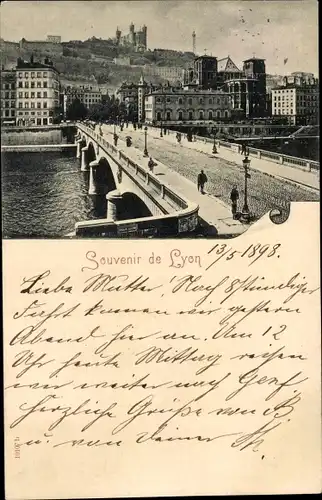 Souvenir de Lyon 13/5 1898.
Liebe Mutter. Nach 8stündiger
Fahrt kamen wir gestern
Abend hier an. Um 12
Uhr heute Mittag reisen
wir weiter nach Genf
herzliche Grüße von B
u. von Deiner